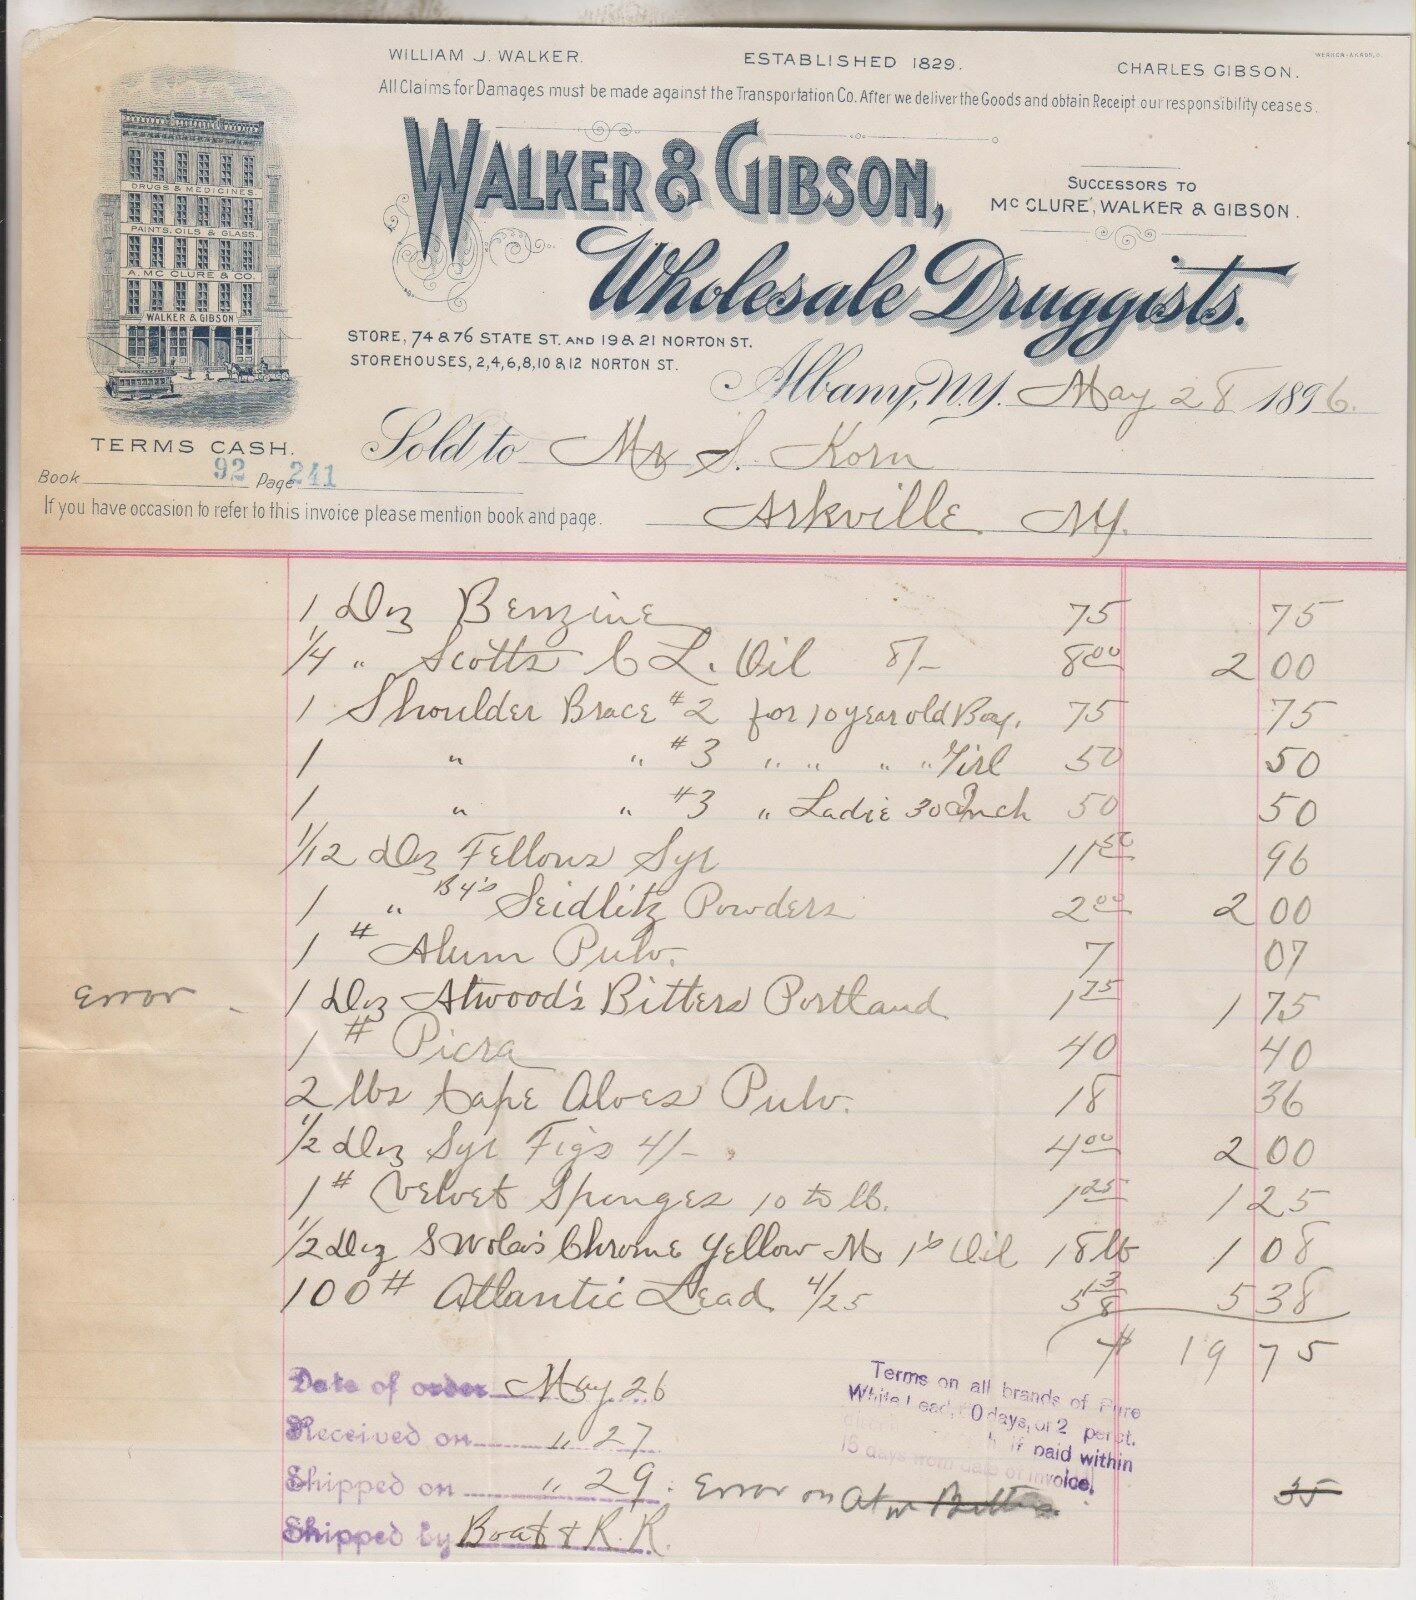 WILLIAM J. WALKER. ESTABLISHED 1829. CHARLES GIBSON.
WERNER-AKRON, O.
All Claims for Damages must be made against the Transportation Co. After we deliver the Goods and obtain Receipt our responsibility ceases.
WALKER & GIBSON,
SUCCESSORS TO
Mc CLURE, WALKER & GIBSON.
Wholesale Druggists.
DRUGS & MEDICINES.
PAINTS, OILS & GLASS.
A. MC CLURE & CO.
WALKER & GIBSON
STORE, 74 & 76 STATE ST. AND 19 & 21 NORTON ST.
STOREHOUSES, 2,4,6,8,10 & 12 NORTON ST.
Albany, N.Y. May 28 1896.
TERMS CASH.
Sold to Mr S. Korn
Book 92 Page 241
Arkville NY.
If you have occasion to refer to this invoice please mention book and page.
1 Doz Benzine 75 75
1/4 " Scotts C L. Oil 8/- 8.00 2 00
1 Shoulder Brace #2 for 10 year old Boy. 75 75
1 " " #3 " " " " Girl 50 50
1 " " #3 " Ladie 30 Inch 50 50
1/12 Doz Fellows Syr 11 50 96
1 " Bx's Seidlitz Powders 2 00 2 00
1 # Alum Pulv. 7 07
Error 1 Doz Atwood's Bitters Portland 1 75 1 75
1 # Picra 40 40
2 lbs Cape Aloes Pulv. 18 36
1/2 Doz Syr Figs 4/- 4 00 2 00
1 # Velvet Sponges 10 to lb. 1 25 1 25
1/2 Doz Chrome Yellow M 1's Oil 18 lb 1 08
100 # Atlantic Lead 4/25 5 3/8 5 38
$ 19 75
Date of order May 26
Received on " 27
Shipped on " 29
Shipped by Boat & R.R.
Terms on all brands of Pure
White Lead, 60 days, or 2 per ct.
if paid within
15 days from date of invoice.
Error on Atw Bitters 35